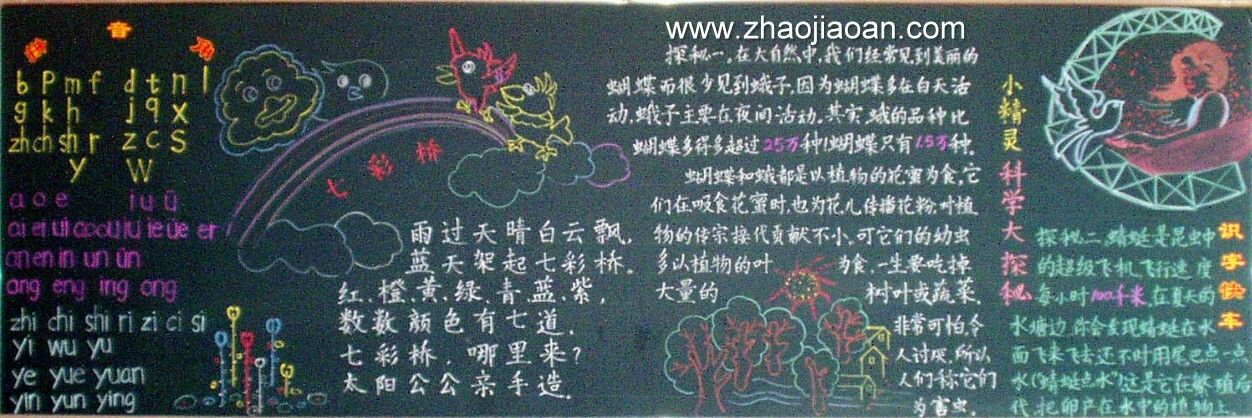 音
b p m f d t n l
g k h j q x
zh ch sh r z c s
y w
a o e i u ü
ai ei ui ao ou iu ie üe er
an en in un ün
ang eng ing ong
zhi chi shi ri zi ci si
yi wu yu
ye yue yuan
yin yun ying
七彩桥
雨过天晴白云飘,
蓝天架起七彩桥。
红、橙、黄、绿、青、蓝、紫,
数数颜色有七道。
七彩桥,哪里来?
太阳公公亲手造。
www.zhaojiaoan.com
探秘一、在大自然中,我们经常见到美丽的
蝴蝶而很少见到蛾子,因为蝴蝶多在白天活
动,蛾子主要在夜间活动。其实,蛾的品种比
蝴蝶多得多超过25万种!蝴蝶只有1.5万种。
蝴蝶和蛾都是以植物的花蜜为食,它
们在吸食花蜜时,也为花儿传播花粉,对植
物的传宗接代贡献不小。可它们的幼虫
多以植物的叶为食,一生要吃掉
大量的树叶或蔬菜,
非常可怕,令
人讨厌,所以
人们称它们
为害虫。
小精灵
科学大探秘
识字快车
探秘二、蜻蜓是昆虫中
的超级飞机,飞行速度
每小时100千米,在夏天的
水塘边,你会发现蜻蜓在水
面飞来飞去还不时用尾巴点一点
水("蜻蜓点水")这是它在繁殖后
代,把卵产在水中的植物上。